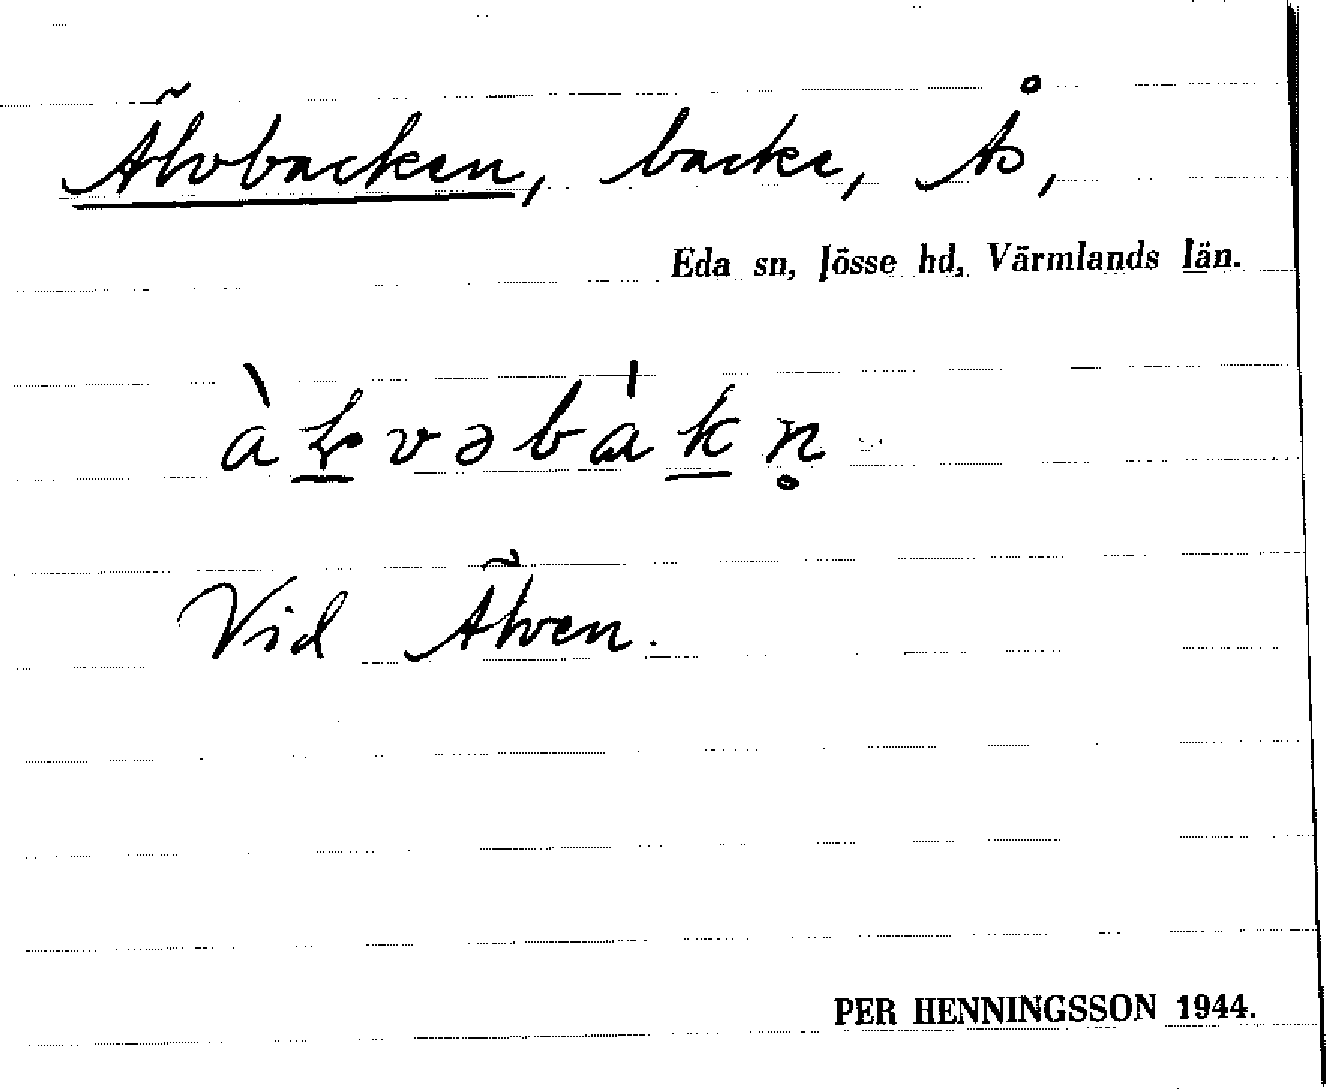 Älvbacken, backe, Ås,
Eda sn, Jösse hd, Värmlands län.
àḷvəbàkn̥
Vid Älven.
PER HENNINGSSON 1944.